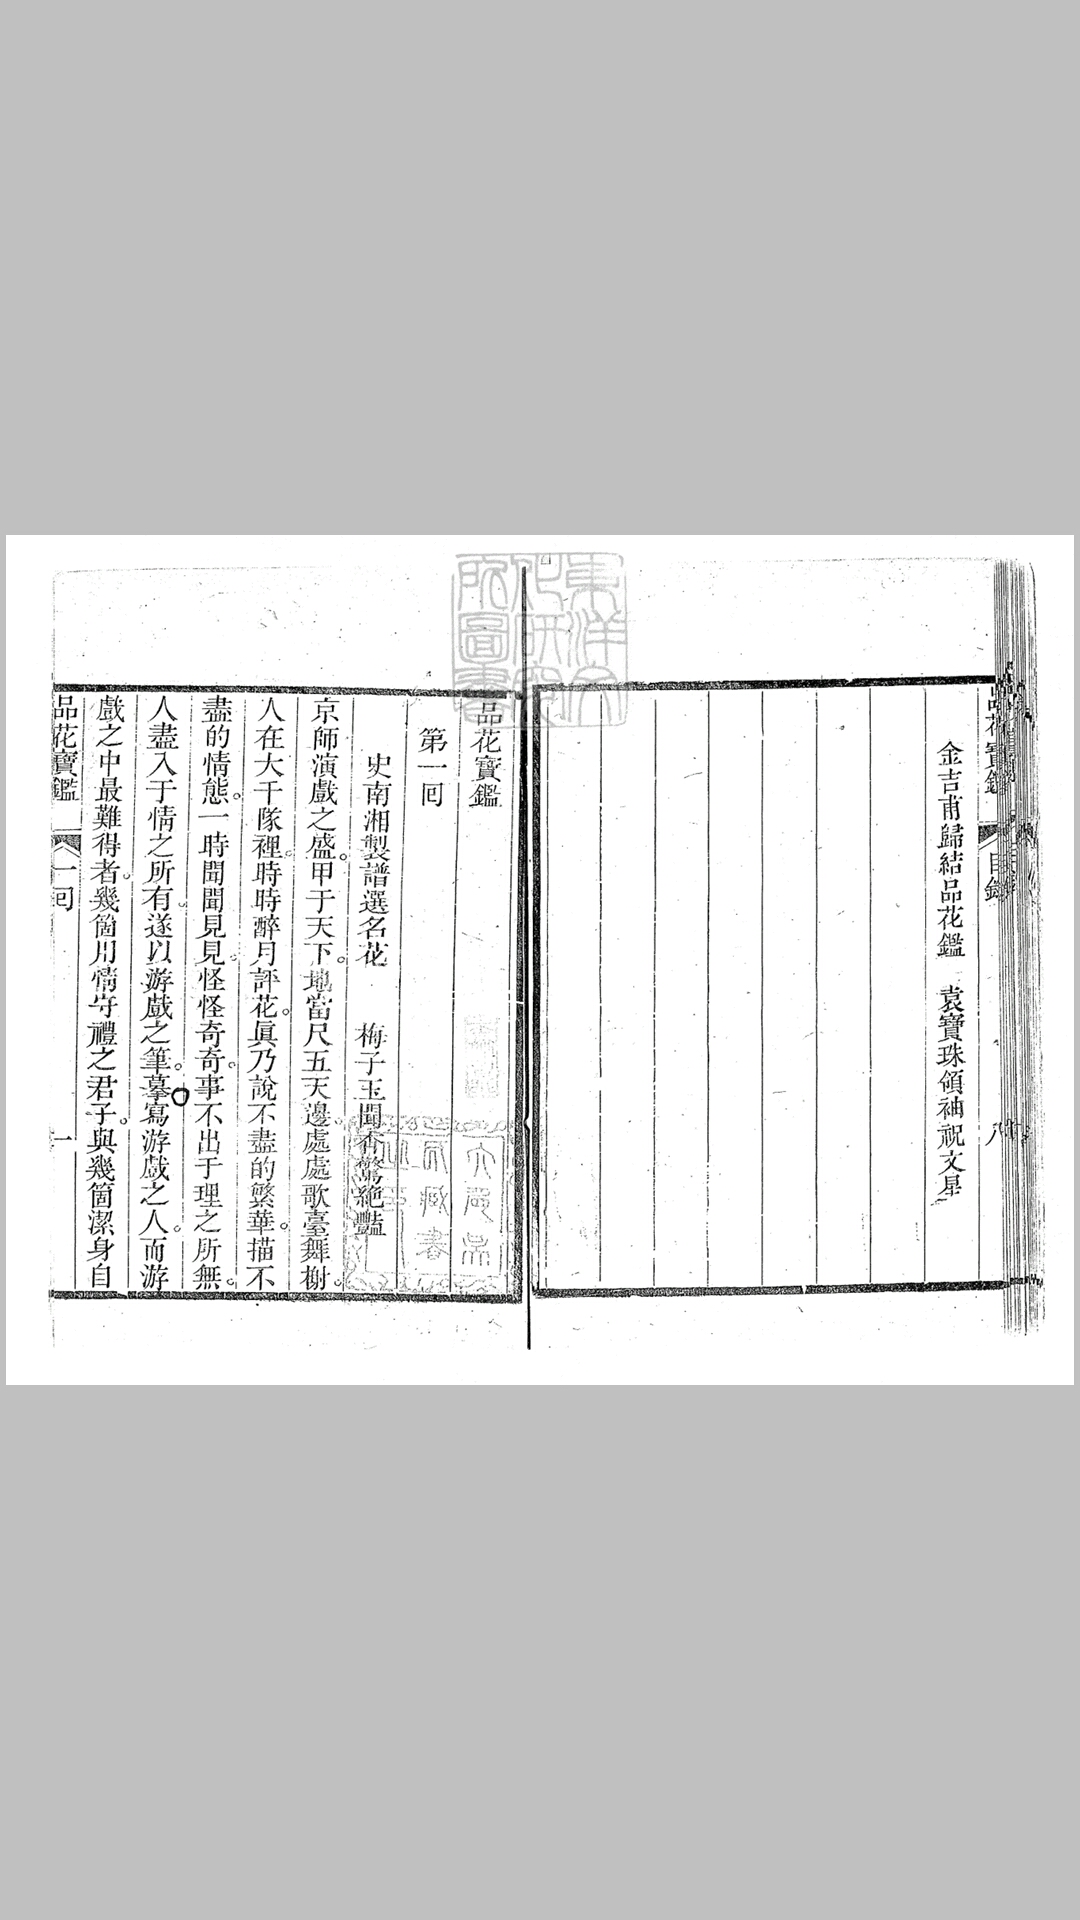 品花寶鑑
目錄
金吉甫歸結品花鑑　袁寶珠領袖祝文星
八
東洋文
化研究
所圖書
品花寶鑑
第一回
史南湘製譜選名花　梅子玉聞香驚絕豔
京師演戲之盛。甲于天下。地當尺五天邊處處歌臺舞榭。
人在大千隊裡。時時醉月評花。眞乃說不盡的繁華。描不
盡的情態。一時聞聞見見。怪怪奇奇。事不出于理之所無。
人盡入于情之所有。遂以游戲之筆。摹寫游戲之人。而游
戲之中最難得者。幾箇用情守禮之君子。與幾箇潔身自
品花寶鑑
一回
一